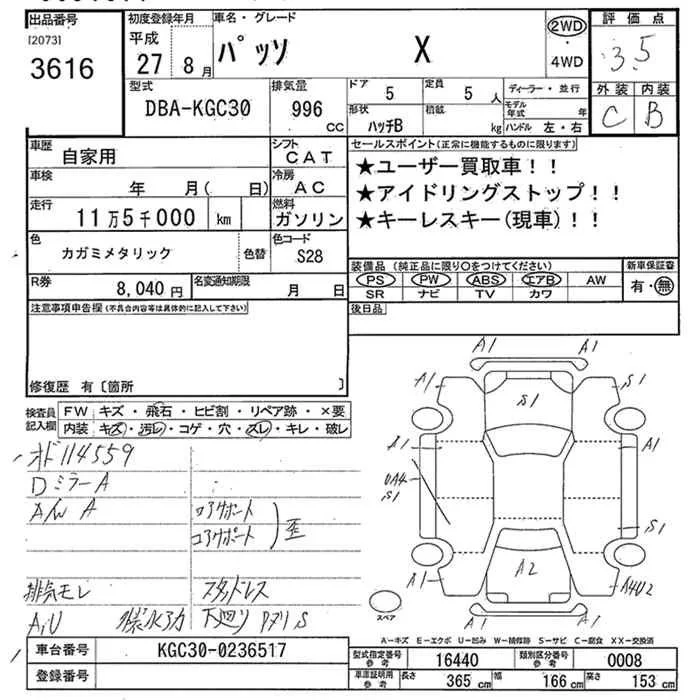 出品番号 初度登録年月 車名・グレード 2WD 評価点
[2073] 平成 パッソ X 4WD 3.5
3616 27 8月
型式 排気量 ドア 定員 ディーラー・並行 外装 内装
DBA-KGC30 996 cc 5 5人 モデル年式 年 C B
形状 積載
ハッチB kg ハンドル 左・右
車歴 自家用 シフト CAT セールスポイント(正常に機能するものに限り)
車検 年 月( 日) 冷房 AC ★ユーザー買取車!!
走行 11万5千000 km 燃料 ガソリン ★アイドリングストップ!!
★キーレスキー(現車)!!
色 カガミメタリック 色替 色コード S28
装備品(純正品に限り○をつけてください) 新車保証書
R券 8,040円 名変通知期限 月 日 PS PW ABS エアB AW 有・無
SR ナビ TV カワ
注意事項申告欄(不具合内容等は具体的に記入して下さい) 後日品
修復歴 有〔箇所 〕
検査員記入欄 FW キズ・飛石・ヒビ割・リペア跡・×要
内装 キズ・汚レ・コゲ・穴・スレ・キレ・破レ
オド114559
DミラーA
コアサポート
コアサポート 歪
排気モレ スタッドレス
下回り サビS
A1 A1
A1 S1 S1
S1 A1
UA4
S1
S1
A2
A1 A4U2
A1 A1
スペア
A-キズ E-エクボ U-凹み W-補修跡 S-サビ C-腐食 XX-交換済
車台番号 KGC30-0236517 型式指定番号 参考 16440 類別区分番号 参考 0008
登録番号 車庫証明 参考 長さ 365cm 幅 166cm 高さ 153cm